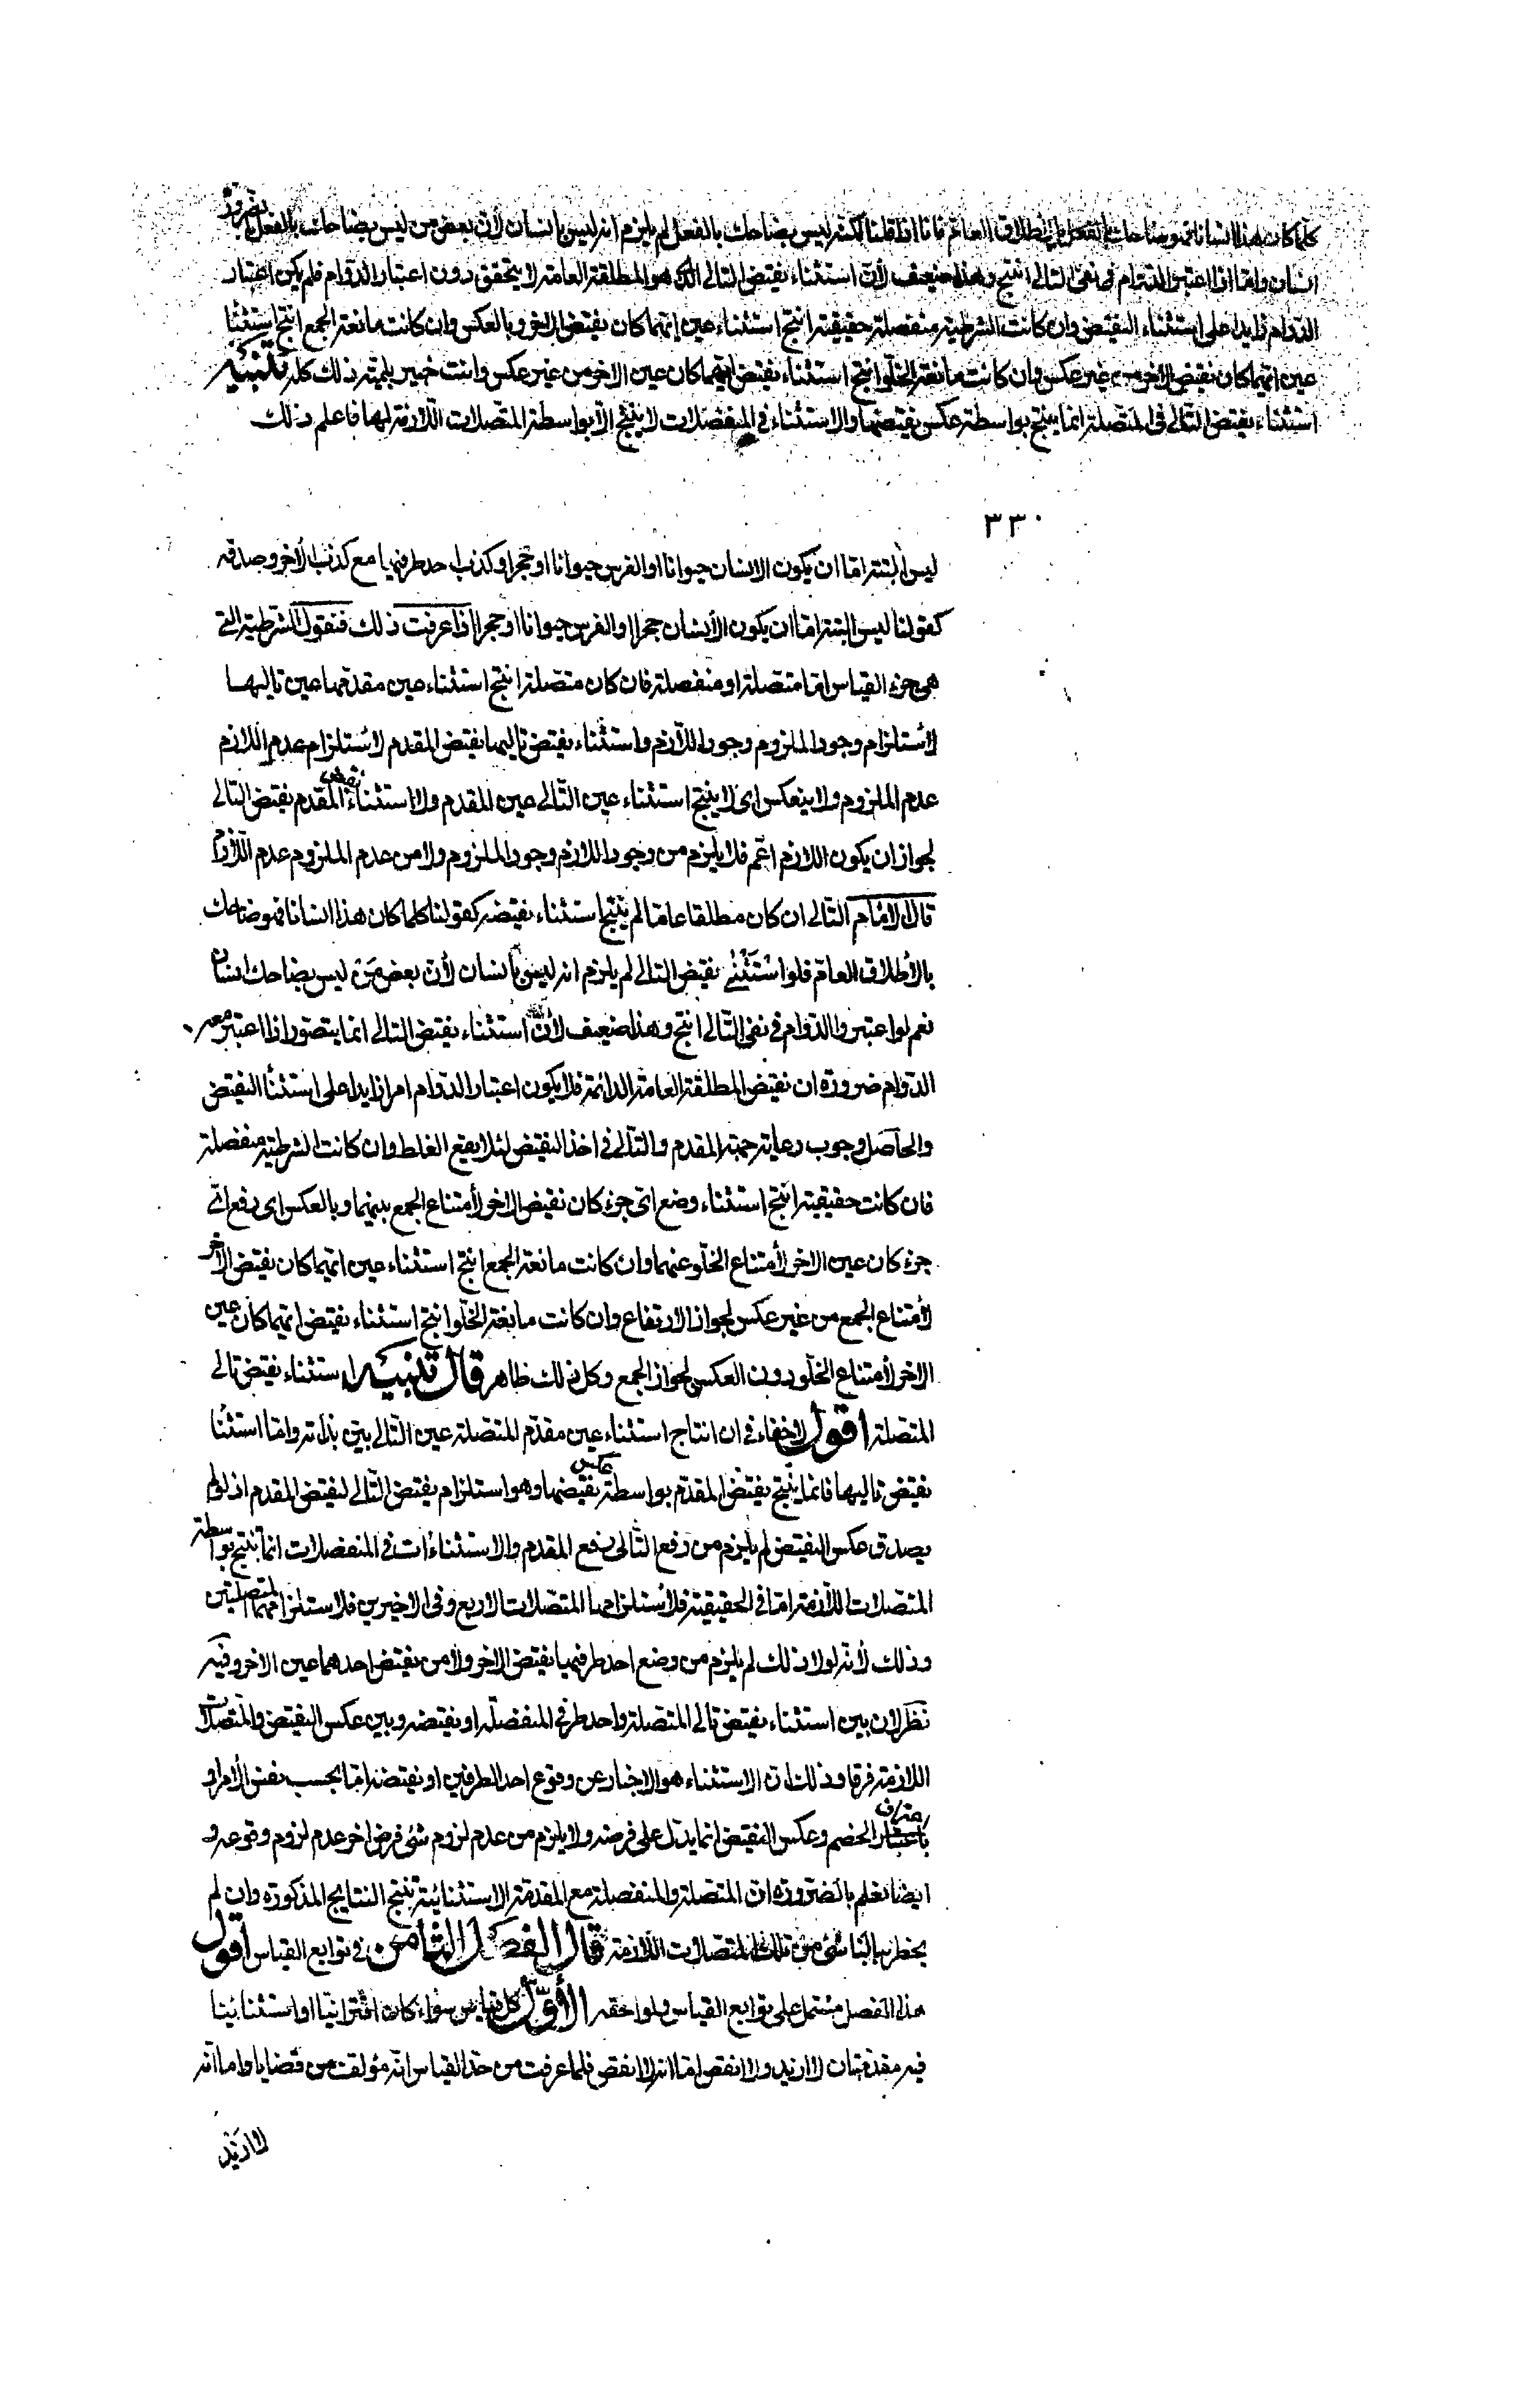 كلما كان هذا انسانا فهو ضاحك بالفعل بالاطلاق العام فانا اذا قلنا لكنه ليس بضاحك بالفعل لم يلزم انه ليس بانسان لأن بعض من ليس بضاحك بالفعل بضرورة
انسان واما اذا اعتبر الدوام فى نفى التالى انتج وهذا ضعيف لأن استثناء نقيض التالى الذى هو المطلقة العامة لا يتحقق دون اعتبار الدوام فلم يكن اعتبار
الدوام زايدا على استثناء النقيض وان كانت الشرطية منفصلة حقيقية انتج استثناء عين ايهما كان نقيض الاخر وبالعكس وان كانت مانعة الجمع انتج استثنا
عين ايهما كان نقيض الاخر من غير عكس وان كانت مانعة الخلو انتج استثناء نقيض ايهما كان عين الاخر من غير عكس وانت خبير بلمية ذلك كله تنبيه
استثناء نقيض التالى فى المتصلة انما ينتج بواسطة عكس نقيضها والاستثناء فى المنفصلات لا ينتج الا بواسطة المتصلات اللازمة لها فاعلم ذلك
٣٣٠
ليس البتة اما ان يكون الانسان حيوانا او الفرس حيوانا او حجرا وكذب احد طرفيها مع كذب الآخر وصدقه
كقولنا ليس البتة اما ان يكون الأنسان حجرا او الفرس حيوانا او حجرا اذا عرفت ذلك فنقول الشرطية التى
هى جزء القياس اما متصلة او منفصلة فان كان متصلة انتج استثناء عين مقدمها عين تاليها
لأستلزام وجود الملزوم وجود اللازم واستثناء نقيض تاليها نقيض المقدم لاستلزام عدم اللازم
عدم الملزوم ولا ينعكس اى لا ينتج استثناء عين التالى عين المقدم ولا استثناء نقيض المقدم نقيض التالى
لجواز ان يكون اللازم اعم فلا يلزم من وجود اللازم وجود الملزوم ولا من عدم الملزوم عدم اللازم
قال الامام التالى ان كان مطلقا عاما لم ينتج استثناء نقيضه كقولنا كلما كان هذا انسانا فهو ضاحك
بالأطلاق العام فلو استثنى نقيض التالى لم يلزم انه ليس بانسان لأن بعض من ليس بضاحك انسان
نعم لو اعتبروا الدوام فى نفى التالى انتج وهذا ضعيف لأن استثناء نقيض التالى انما يتصور اذا اعتبر معه
الدوام ضرورة ان نقيض المطلقة العامة الدائمة فلا يكون اعتبار الدوام امرا زايدا على استثنأ النقيض
والحاصل وجوب رعاية جهة المقدم والتالى فى اخذ النقيض لئلا يقع الغلط وان كانت الشرطية منفصلة
فان كانت حقيقية انتج استثناء وضع اى جزء كان نقيض الاخر لأمتناع الجمع بينهما وبالعكس اى رفع اى
جزء كان عين الاخر لأمتناع الخلو عنهما وان كانت مانعة الجمع انتج استثناء عين ايهما كان نقيض الآخر
لأمتناع الجمع من غير عكس لجواز الارتفاع وان كانت مانعة الخلو انتج استثناء نقيض ايهما كان عين
الاخر لأمتناع الخلو دون العكس لجواز الجمع وكل ذلك ظاهر قال تنبيه استثناء نقيض تالى
المتصلة اقول لا خفاء فى ان انتاج استثناء عين مقدم المتصلة عين التالى بين بذاته واما استثنأ
نقيض تاليها فانما ينتج نقيض المقدم بواسطة عكس نقيضها وهو استلزام نقيض التالى لنقيض المقدم اذ لو لم
يصدق عكس النقيض لم يلزم من رفع التالى رفع المقدم والاستثناءات فى المنفصلات انما ينتج بواسطة
المتصلات اللازمة اما فى الحقيقية فلاستلزامها المتصلات الاربع وفى الاخيرين فلاستلزامهما المتصلتين
وذلك لأنه لولا ذلك لم يلزم من وضع احد طرفيها نقيض الاخر ولا من نقيض احدهما عين الاخر وفيه
نظر لان بين استثناء نقيض تالى المتصلة واحد طرفى المنفصلة او نقيضه وبين عكس النقيض والمتصلات
اللازمة فرقا وذلك ان الاستثناء هو الاخبار عن وقوع احد الطرفين او نقيضه اما بحسب نفس الأمر او
باعتراف الخصم وعكس النقيض انما يدل على فرضه ولا يلزم من عدم لزوم شئ فرض اخر عدم لزوم وقوعه و
ايضا نعلم بالضرورة ان المتصلة والمنفصلة مع المقدمة الاستثنائية تنتج النتايج المذكورة وان لم
يخطر ببالنا شئ من تلك المتصلات اللازمة قال الفصل الثامن فى توابع القياس اقول
هذا الفصل مشتمل على توابع القياس ولواحقه الأول كل قياس سواء كان اقترانيا او استثنائيا
فيه مقدمتان لا ازيد ولا انقص اما انه لا انقص فلما عرفت من حد القياس انه مؤلف من قضايا واما انه
لا ازيد